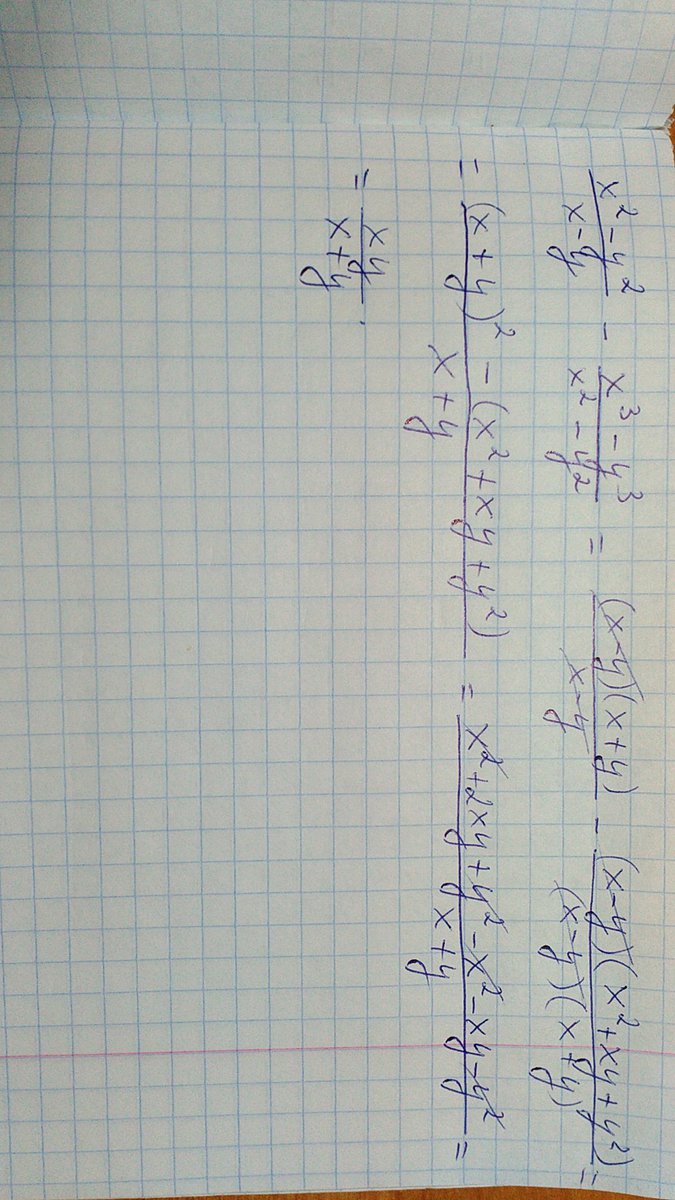 (x² - y²)/(x - y) - (x³ - y³)/(x² - y²) = ((x - y)(x + y))/(x - y) - ((x - y)(x² + xy + y²))/((x - y)(x + y)) =
= ((x + y)² - (x² + xy + y²))/(x + y) = (x² + 2xy + y² - x² - xy - y²)/(x + y) =
= (xy)/(x + y).